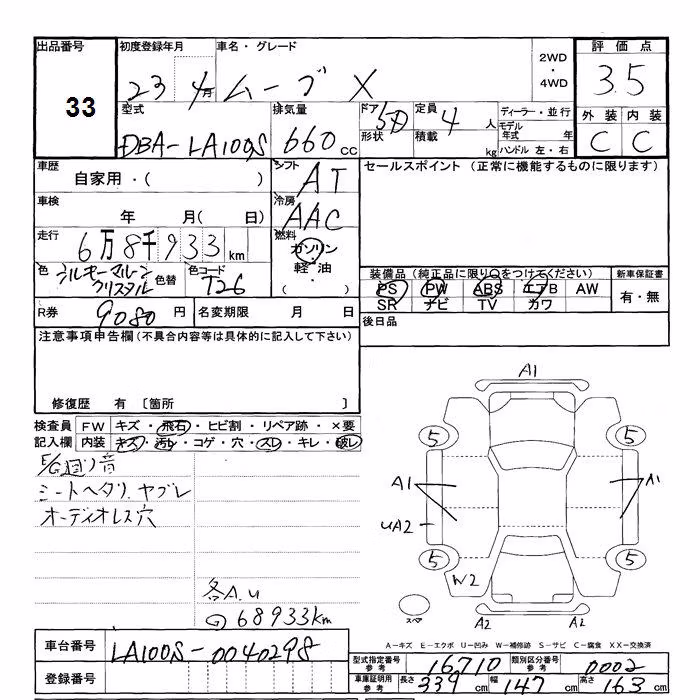 出品番号
33
初度登録年月
23 4月
車名・グレード
ムーブ X
2WD
・
4WD
評価点
3.5
外装 内装
C C
型式
DBA-LA100S
排気量
660cc
ドア 5D
形状
定員 4人
積載 kg
ディーラー・並行
モデル年式 年
ハンドル 左・右
車歴
自家用・( )
シフト
AT
セールスポイント (正常に機能するものに限ります)
車検
年 月( 日)
冷房
AAC
走行
6万8千933km
燃料
ガソリン
・
軽油
・
( )
色
シルキーマルーン
クリスタル
色替
色コード
T26
装備品(純正品に限り○をつけてください)
PS PW ABS エアB AW
SR ナビ TV カワ
新車保証書
有・無
R券 9080円
名変期限 月 日
後日品
注意事項申告欄(不具合内容等は具体的に記入して下さい)
修復歴 有 〔箇所 〕
検査員記入欄
FW キズ・飛石・ヒビ割・リペア跡・×要
内装 キズ・汚レ・コゲ・穴・スレ・キレ・破レ
E/G廻り音
シートヘタリ、ヤブレ
オーディオレス穴
各A.U
68933km
A1
5 5
A1 A1
UA2
5 5
W2
スペア
A2 A2
A−キズ E−エクボ U−凹み W−補修跡 S−サビ C−腐食 XX−交換済
車台番号
LA100S-0040298
登録番号
型式指定番号 参考 16710
類別区分番号 参考 0002
車庫証明用 参考 長さ 339cm 幅 147cm 高さ 163cm